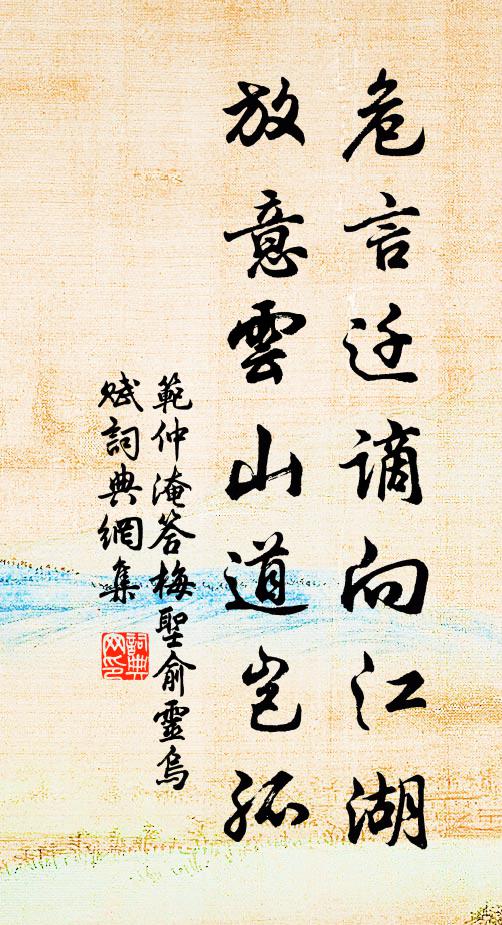 危言迁謫向江湖
放意雲山道豈孤
範仲淹答梅聖俞靈烏
賦詞典網集
詞典
网印